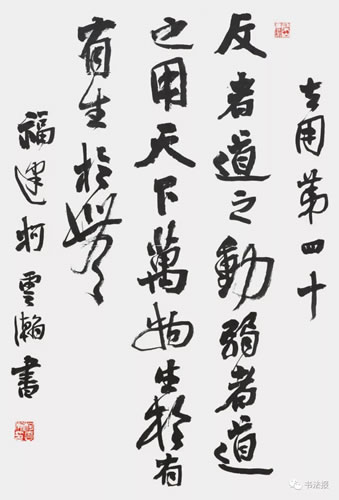 去用第四十
反者道之動弱者道
之用天下萬物生於有
有生於無
福建 雲瀚書
书法报